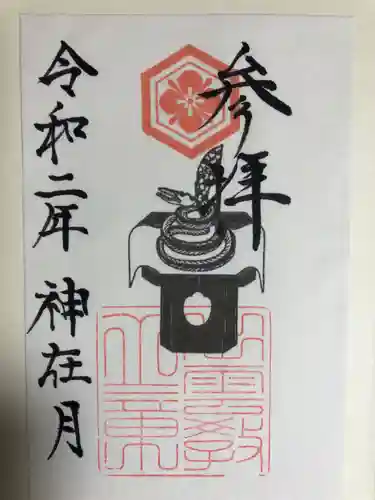 参拝
令和二年 神在月